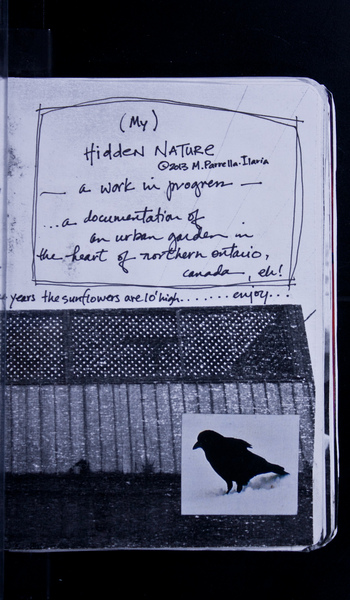 (My)
Hidden Nature
©2013 M.Parrella.Ilaria
— a work in progress —
...a documentation of
an urban garden in
the heart of northern ontario,
canada—, eh!
years the sunflowers are 10' high........ enjoy...